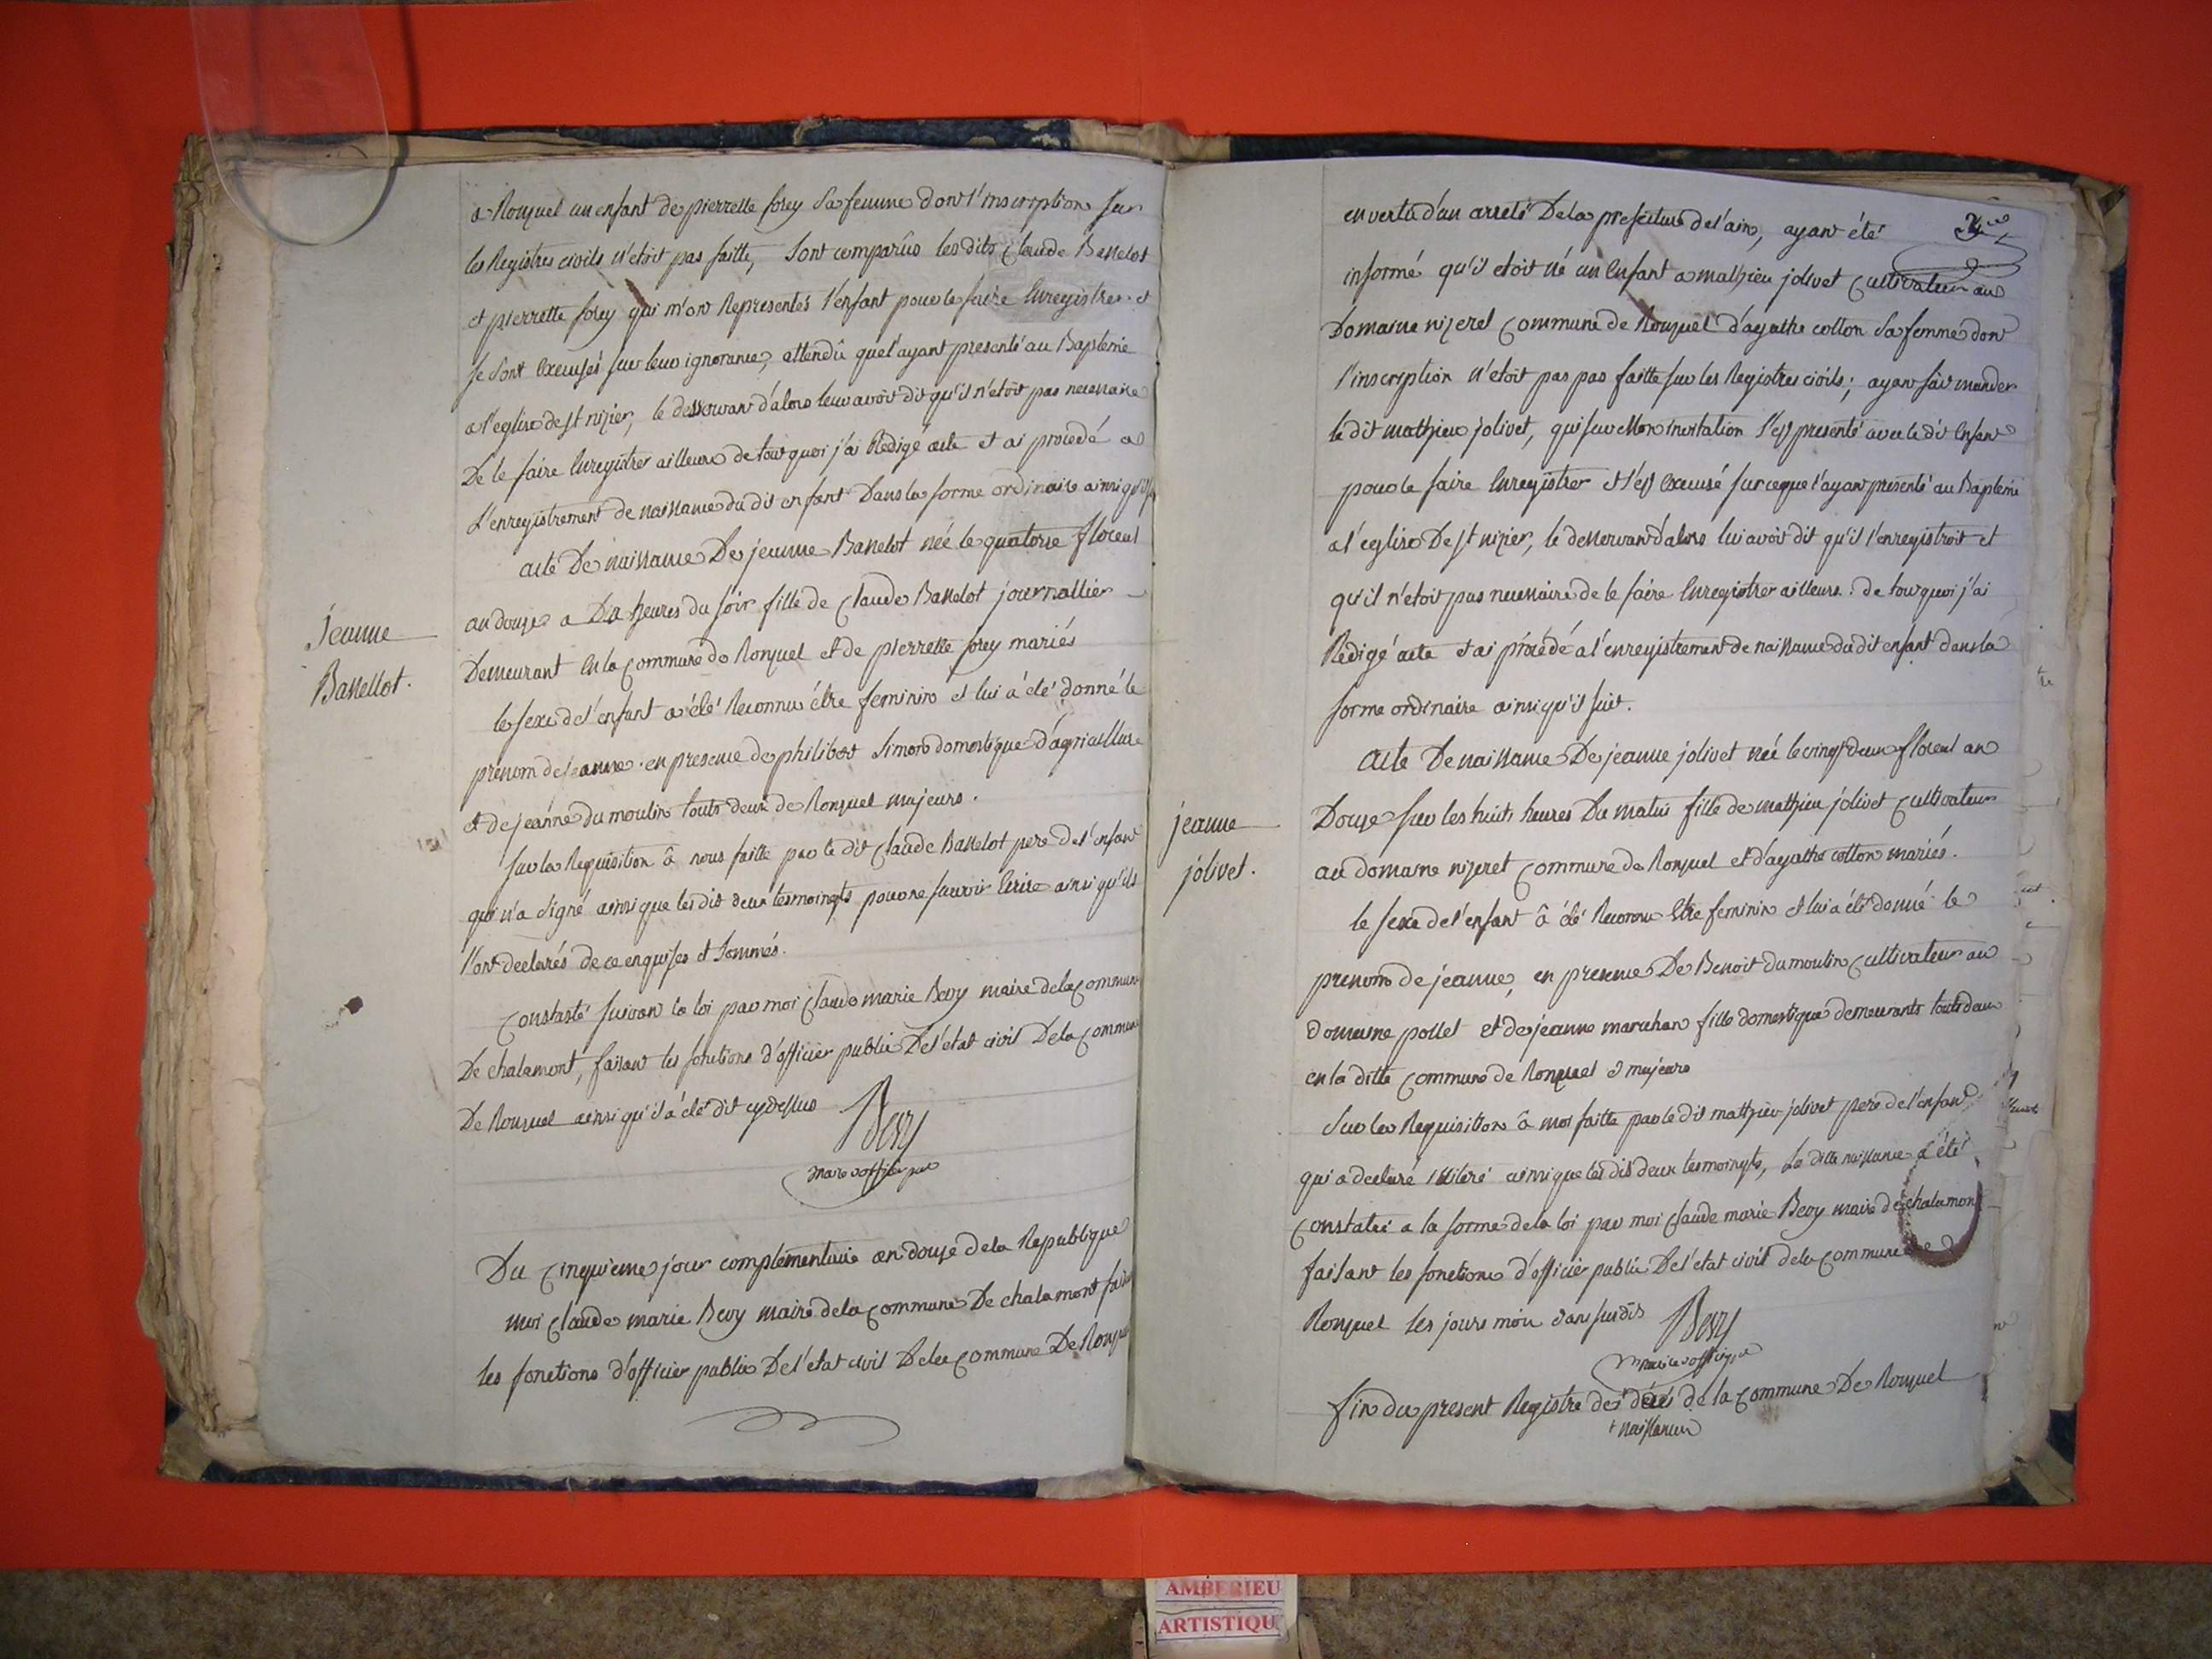 a Ronzuel un enfant de pierrette forey Sa femme dont l'inscription sur
les Registres civils n'etoit pas faitte, Sont comparûs les dits Claude Basselot
et pierrette forey qui m'ont Representés l'enfant pour le faire Enregistrer et
se Sont Excusés sur leur ignorance, attendû que l'ayant presenté au Bapteme
a l'eglise de st nizier, le desservant d'alors leur avoit dit qu'il n'étoit pas necessaire
De le faire Enregistrer ailleurs de tout quoi j'ai Redigé acte et ai procedé a
L'enregistrement de naissance du dit enfant Dans la forme ordinaire ainsi qu'il
acte De naissance De jeanne Basselot née le quatorze floreal
an douze a Dix heures du soir fille de Claude Basselot journallier
Jeanne
Bassellot.
Demeurant En la Commune de Ronzuel et de pierrette forey mariés
le sexe de l'enfant a été Reconnu être feminin et lui a été donné le
prenom de jeanne. en presence de philibert Simon domestique d'agriculture
et de jeanne du moulin touts deux de Ronzuel majeurs.
Sur la Requisition â nous faitte par le dit Claude Basselot pere de l'enfant
qui n'a signé ainsi que les dit deux temoingts pour ne savoir Ecrire ainsi qu'ils
l'ont declarés de ce enquises et Sommés.
Constaté suivant la loi par moi Claude marie Bevy maire de la Commune
De chalamont, faisant les fonctions d'officier public De l'etat civil De la Commune
De Ronzuel ainsi qu'il a été dit cy dessus Bevy
maire et officier
Du Cinquieme jour complementaire an douze de la Republique
moi Claude marie Bevy maire de la Commune De chalamont fais
les fonctions d'officier public De l'etat civil De la Commune De Ronzuel
en vertu d'un arreté De la prefecture de l'ain, ayant été
informé qu'il etoit né un Enfant a mathieu jolivet Cultivateur au
Domaine nizeret Commune de Ronzuel d'agathe cotton Sa femme dont
l'inscription n'etoit pas pas faitte sur les Registres civils; ayant fait mander
le dit mathieu jolivet, qui sur Mon invitation s'est presenté avec le dit Enfant
pour le faire Enregistrer et s'est Excusé sur ce que l'ayant presenté au Bapteme
a l'eglise De st nizier, le desservant d'alors lui avoit dit qu'il l'enregistroit et
qu'il n'etoit pas necessaire de le faire Enregistrer ailleurs. de tout quoi j'ai
Rédigé acte et ai procédé a l'enregistrement de naissance du dit enfant dans la
forme ordinaire ainsi qu'il suit.
Acte De naissance De jeanne jolivet née le vingt deux floreal an
Douze sur les huits heures Du matin fille de mathieu jolivet Cultivateur
jeanne
jolivet.
au domaine nizeret Commune de Ronzuel et d'agathe cotton mariés.
le sexe de l'enfant â été Reconnu Etre feminin et lui a été donné le
prenom de jeanne, en presence De Benoit du moulin Cultivateur au
Domaine pollet et de jeanne marchan fille domestique demeurants touts deux
en la ditte Commune de Ronzuel et majeurs
Sur la Requisition â moi faitte par le dit mathieu jolivet pere de l'enfant
qui a declaré illiteré ainsi que les dis deux temoingts, la ditte naissance a été
Constatée a la forme de la loi par moi Claude marie Bevy maire de chalamont
faisant les fonctions d'officier public De l'etat civil de la Commune de
Ronzuel les jours mois et an susdits Bevy
maire et officier
fin du present Registre des décés de la Commune De Ronzuel
naissances
AMBERIEU
ARTISTIQU